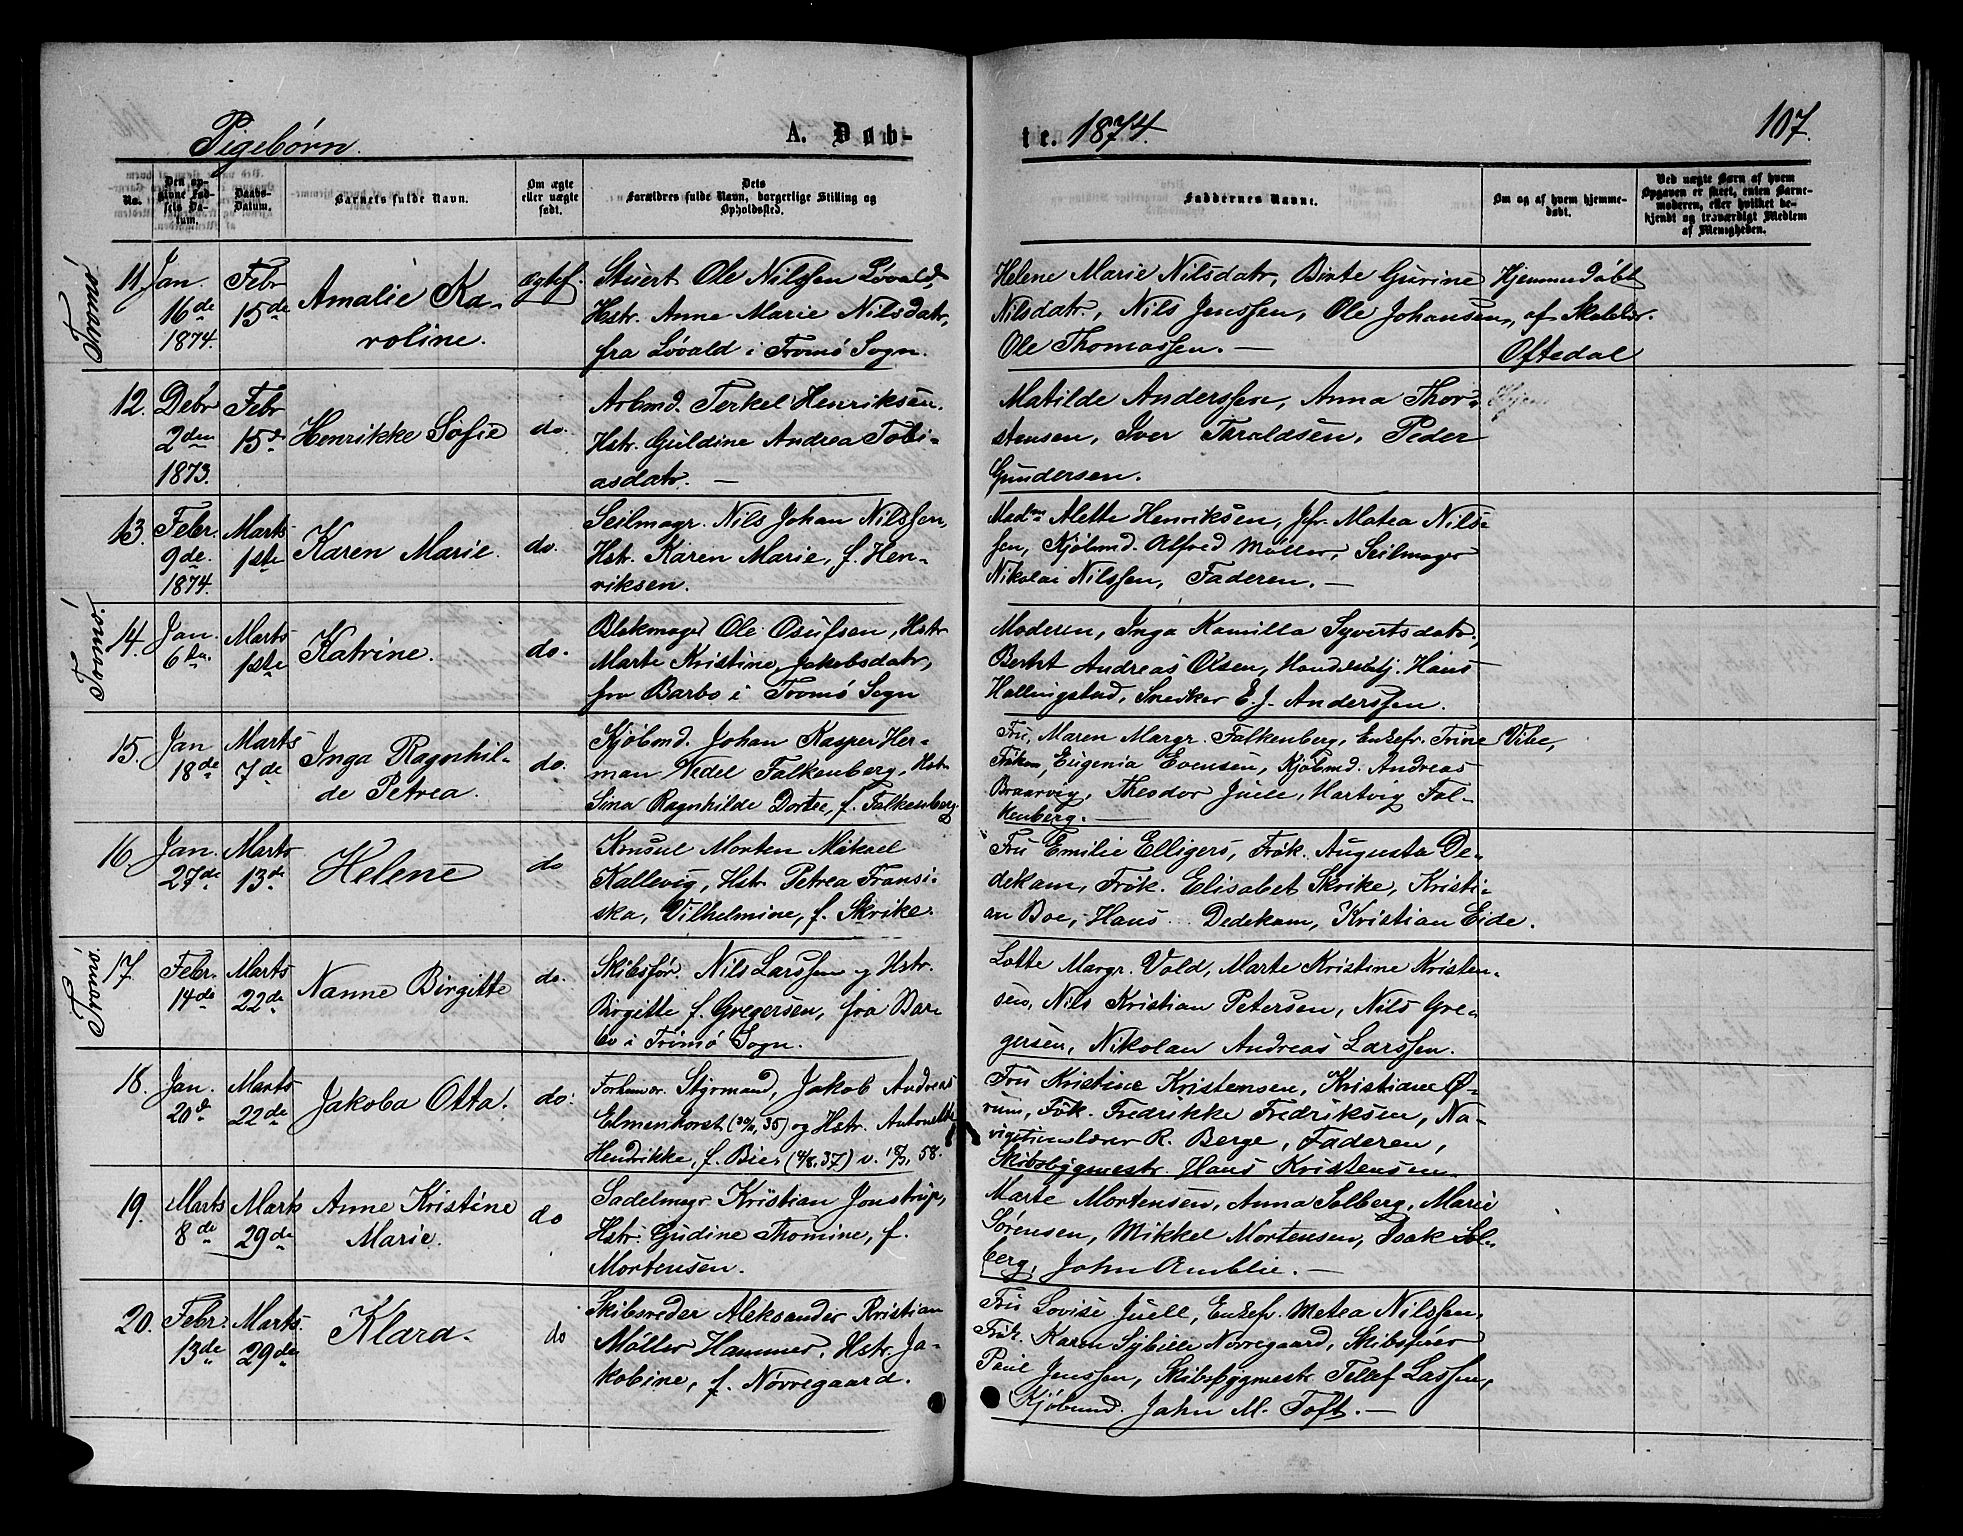 Pigebørn. A. Døb-
te. 1874. 107.
No. Den op-givne Fød-sels Da-tum. Daabs-Datum. Barnets fulde Navn. Om ægte eller uægte født. Dets Forældres fulde Navn, borgerlige Stilling og Opholdssted. Faddernes Navne. Om og af hvem hjemme-døbt. Ved uægte Børn af hvem Opgaven er skeet, enten Barne-moderen, eller hvilket be-kjendt og troværdigt Medlem af Menigheden.
Tromø
11. Jan. 16de 1874. Febr 15de Amalie Ka-roline. ægtef.
Stuert Ole Nilssen Løvald,
Hstr. Anne Marie Nilsdatr,
fra Løvald i Tromø Sogn.
Helene Marie Nilsdatr, Birte Gurine
Nilsdatr, Nils Jenssen, Ole Johansen,
Ole Thomassen. —
Hjemmedøbt
af Skolelær.
Oftedal
12. Debr 2den 1873. Febr 15de Henrikke Sofie do.
Arbmd. Terkel Henriksen.
Hstr. Guldine Andrea Tobi-
asdatr. —
Matilde Anderssen, Anna Thor-
stensen, Iver Taraldsen, Peder
Gundersen.
13. Febr. 9de 1874. Marts 1ste Karen Marie. do.
Seilmagr. Nils Johan Nilssen,
Hstr. Karen Marie, f. Hen-
riksen.
Madme Alette Henriksen, Jfr. Matea Nils-
sen, Kjøbmd. Alfred Møller, Seilmager
Nikolai Nilssen, Faderen. —
Tromø.
14. Jan. 6te. Marts 1ste Katrine. do.
Blokmager Ole Osufsen, Hstr
Marte Kristine Jakobsdatr,
fra Barbo i Tromø Sogn
Moderen, Inga Kamilla Syvertsdatr,
Berht Andreas Olsen, Handelsbtj. Hans
Hallingstad, Snedker E. J. Anderssen.
15. Jan 18de Marts 7de Inga Ragnhil-de Petrea. do.
Kjøbmd. Johan Kasper Her-
man Wedel Falkenberg, Hstr
Sina Ragnhilde Dortee, f. Falkenberg.
Fru, Maren Margr. Falkenberg, Enkefr. Trine Vibe,
Frøken, Eugenia Evensen, Kjøbmd. Andreas
Braarvig, Theodor Juell, Hartvig Fal-
kenberg. —
16. Jan. 27de Marts 13de Helene do
Knusul Morten Mikael
Kallevig, Hstr. Petrea Fransi-
ska, Vilhelmine, f. Skrike.
Fru Emilie Elligers, Frøk. Augusta De-
dekam, Frøk. Elisabet Skrike, Kristi-
an Boe, Hans Dedekam, Kristian Eide.
Tromø.
17. Febr. 14de Marts 22de Nanne Birgitte do.
Skibsfør. Nils Larssen og Hstr.
Birgitte f. Gregersen, fra Bar-
bo i Tromø Sogn.
Lotte Margr. Vold, Marte Kristine Kristen-
sen, Nils Kristian Petersen, Nils Gre-
gersen, Nikolan Andreas Larssen.
18. Jan. 20de Marts 22de Jakoba Otta. do.
Forhenvr. Styrmand, Jakob Andreas
Elmenhorst (30/11, 35) og Hstr. Antonette
Hendrikke, f. Bier (4/8, 37) v. 58.
Fru Kristine Kristensen, Kristiane Ø-
rum, Frøk. Fredrikke Fredriksen, Na-
vigationslærer R. Berge, Faderen,
Skibsbygmestr. Hans Kristensen
19. Marts 8de Marts 29de Anne Kristine Marie. do
Sadelmagr Kristian Jonstrup,
Hstr. Gudine Thomine, f.
Mortensen.
Marte Mortensen, Anna Solberg, Marie
Sørensen, Mikkel Mortensen, Isak Sol-
berg, John Amblie. —
20. Febr. 13de Marts. 29de Klara. do
Skibsreder Aleksander Kristian
Møller Hammer, Hstr. Ja-
kobine, f. Nørregaard.
Fru Lovise Juell, Enkefr. Metea Nilssen,
Frøk. Karen Sybille Nørregaard, Skibsfører
Paul Jenssen, Skibsbygmestr. Tellef Lassen,
Kjøbmd. John M. Toft. —